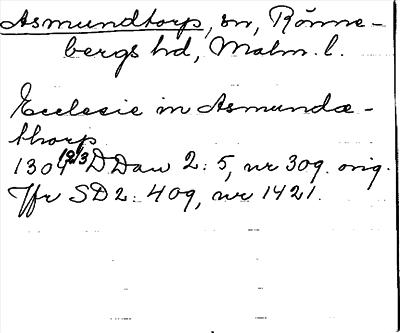 Asmundtorp, sn, Rönne-
bergs hd, Malm. l.
Ecclesie in Asmundæ-
thorp
1304 12/3 DDan 2: 5, nr 309. orig.
Jfr SD 2: 409, nr 1421.